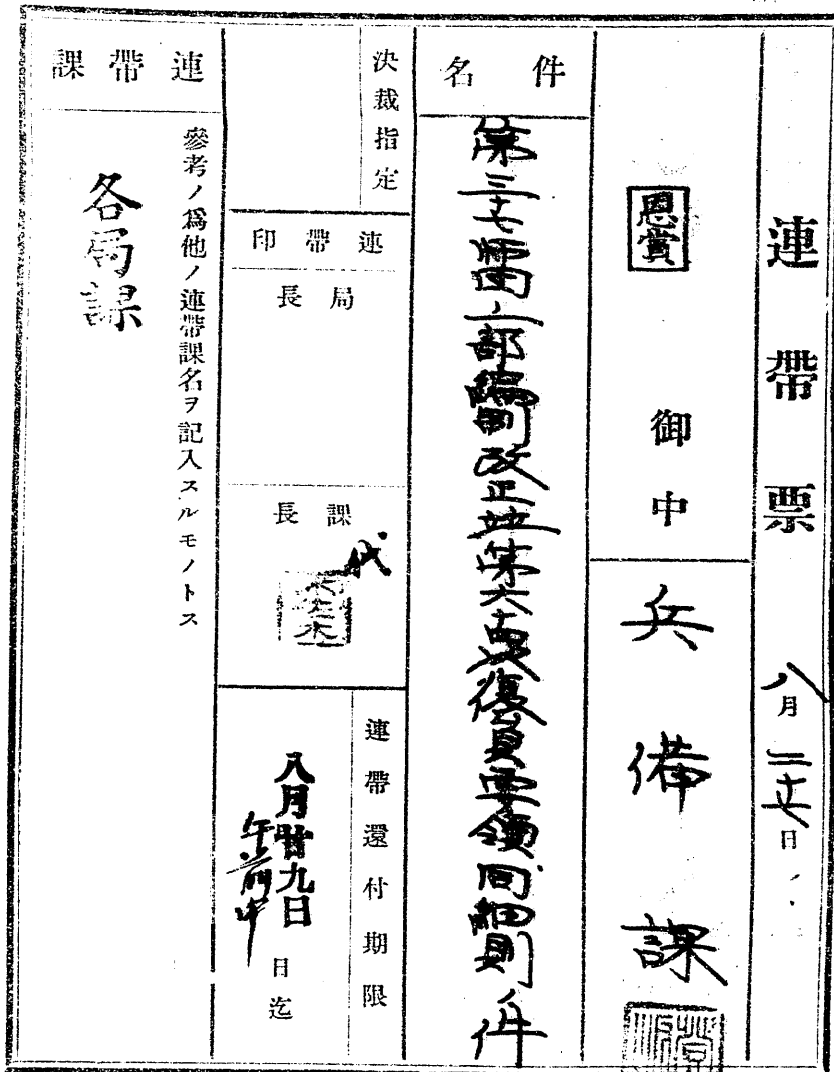 連帶票 八月二十七日
恩賞 御中
兵備課
件名
第三十七師團ノ一部編制改正竝第六十復員要領同細則ノ件
決裁指定
連帶印
局長
課長
代
連帶還付期限
八月廿九日
午前中
日迄
連帶課
參考ノ爲他ノ連帶課名ヲ記入スルモノトス
各局課